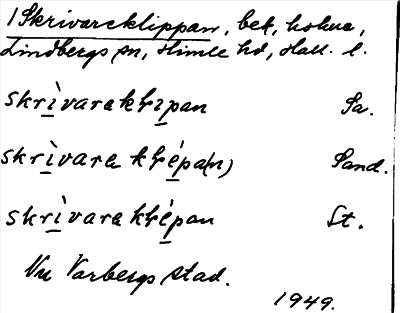 1 Skrivareklippan, bet, holme,
Lindbergs sn, Himle hd, Hall. l.
skrìvarakłìpan Sa.
skrìvara kłépa(n) Sand.
skrìvarakłépan St.
Nu Varbergs stad.
1949.